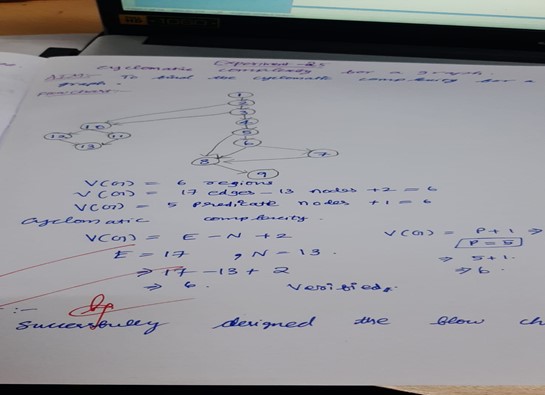 Experiment - 25
cyclomatic complexity for a graph.
AIM:- To find the cyclomatic complexity for a
graph.
Flowchart:-
1
2
3
4
5
6
7
8
9
10
11
12
13
V(G) = 6 regions
V(G) = 17 edges - 13 nodes + 2 = 6
V(G) = 5 predicate nodes + 1 = 6
cyclomatic complexity.
V(G) = E - N + 2
E = 17 , N = 13.
⇒ 17 - 13 + 2
⇒ 6.
V(G) = P + 1 ⇒
P = 5
⇒ 5 + 1.
⇒ 6.
Verified.
:-
Successfully designed the flow ch